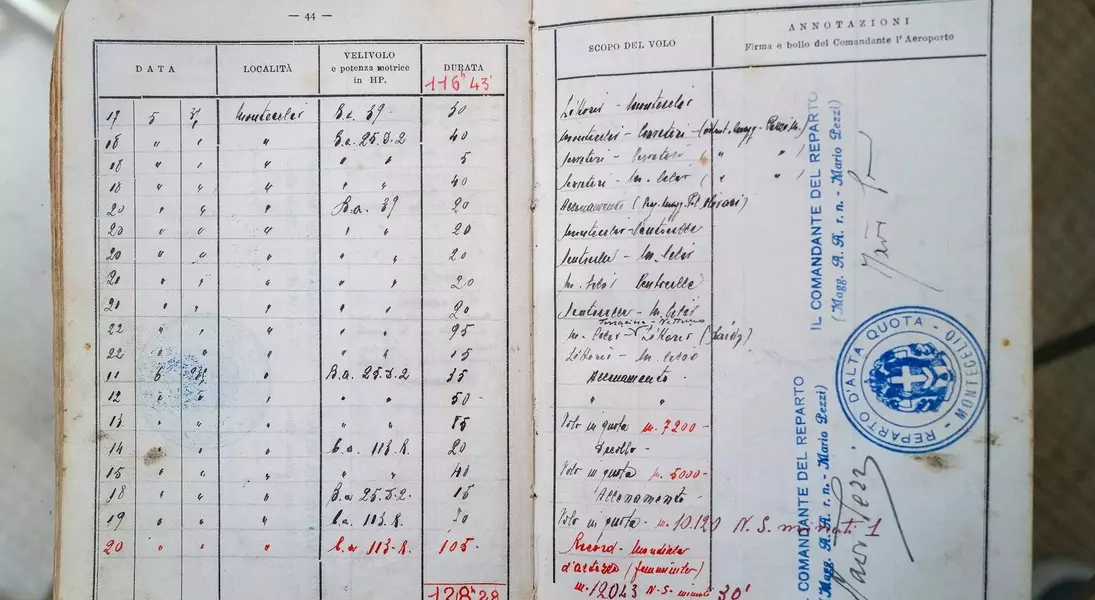 — 44 —
DATA LOCALITÀ VELIVOLO e potenza motrice in HP. DURATA
116h 43'
17 5 Montecelio B.a. 39 50
18 " " " B.a. 25.D.2 40
18 " " " " " 5
18 " " " " " 40
20 " " " B.a. 39 20
20 " " " " " 20
20 " " " " " 20
20 " " " " " 20
20 " " " " " 20
22 " " " " " 95
22 " " " " " 15
11 6 " B.a. 25.D.2 35
12 " " " " " 50
13 " " " " "
14 " " " C.a. 113.R. 20
15 " " " " " 40
18 " " " B.a. 25.D.2. 15
19 " " " C.a. 113.R.
20 " " " C.a. 113-R. 105
128h 28
SCOPO DEL VOLO
ANNOTAZIONI
Firma e bollo del Comandante l'Aeroporto
Littorio - Montecelio
Montecelio - Cerveteri - Magg. Pezzi M.)
Cerveteri - Cerveteri ( " " )
Cerveteri - M. Celio ( " " )
Allenamento
Montecelio - Centocelle
Centocelle - M. Celio
M. Celio Centocelle
Centocelle - M. Celio
Terracina - Nettuno
M. Celio - Littorio
Littorio - M. Celio
Allenamento -
" "
Volo in quota m. 7200 -
Volo in quota m. 5000 -
Allenamento -
Volo in quota - m. 10.120 N.S. minuti 1
Record - Mondiale
d'altezza (femminile)
m. 12043 N.S. minuti 30'
IL COMANDANTE DEL REPARTO
(Magg. A. A. r. n. - Mario Pezzi)
Mario Pezzi
REPARTO D'ALTA QUOTA - MONTECELIO
IL COMANDANTE DEL REPARTO
(Magg. A. A. r. n. - Mario Pezzi)
Mario Pezzi